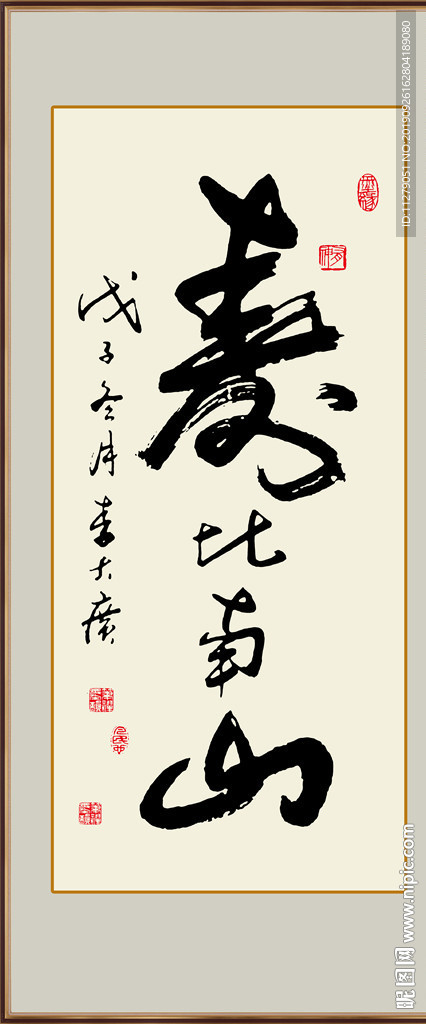 寿比南山
戊子冬月李大广
ID:11279051 NO:20190926162804189080
昵图网 www.nipic.com